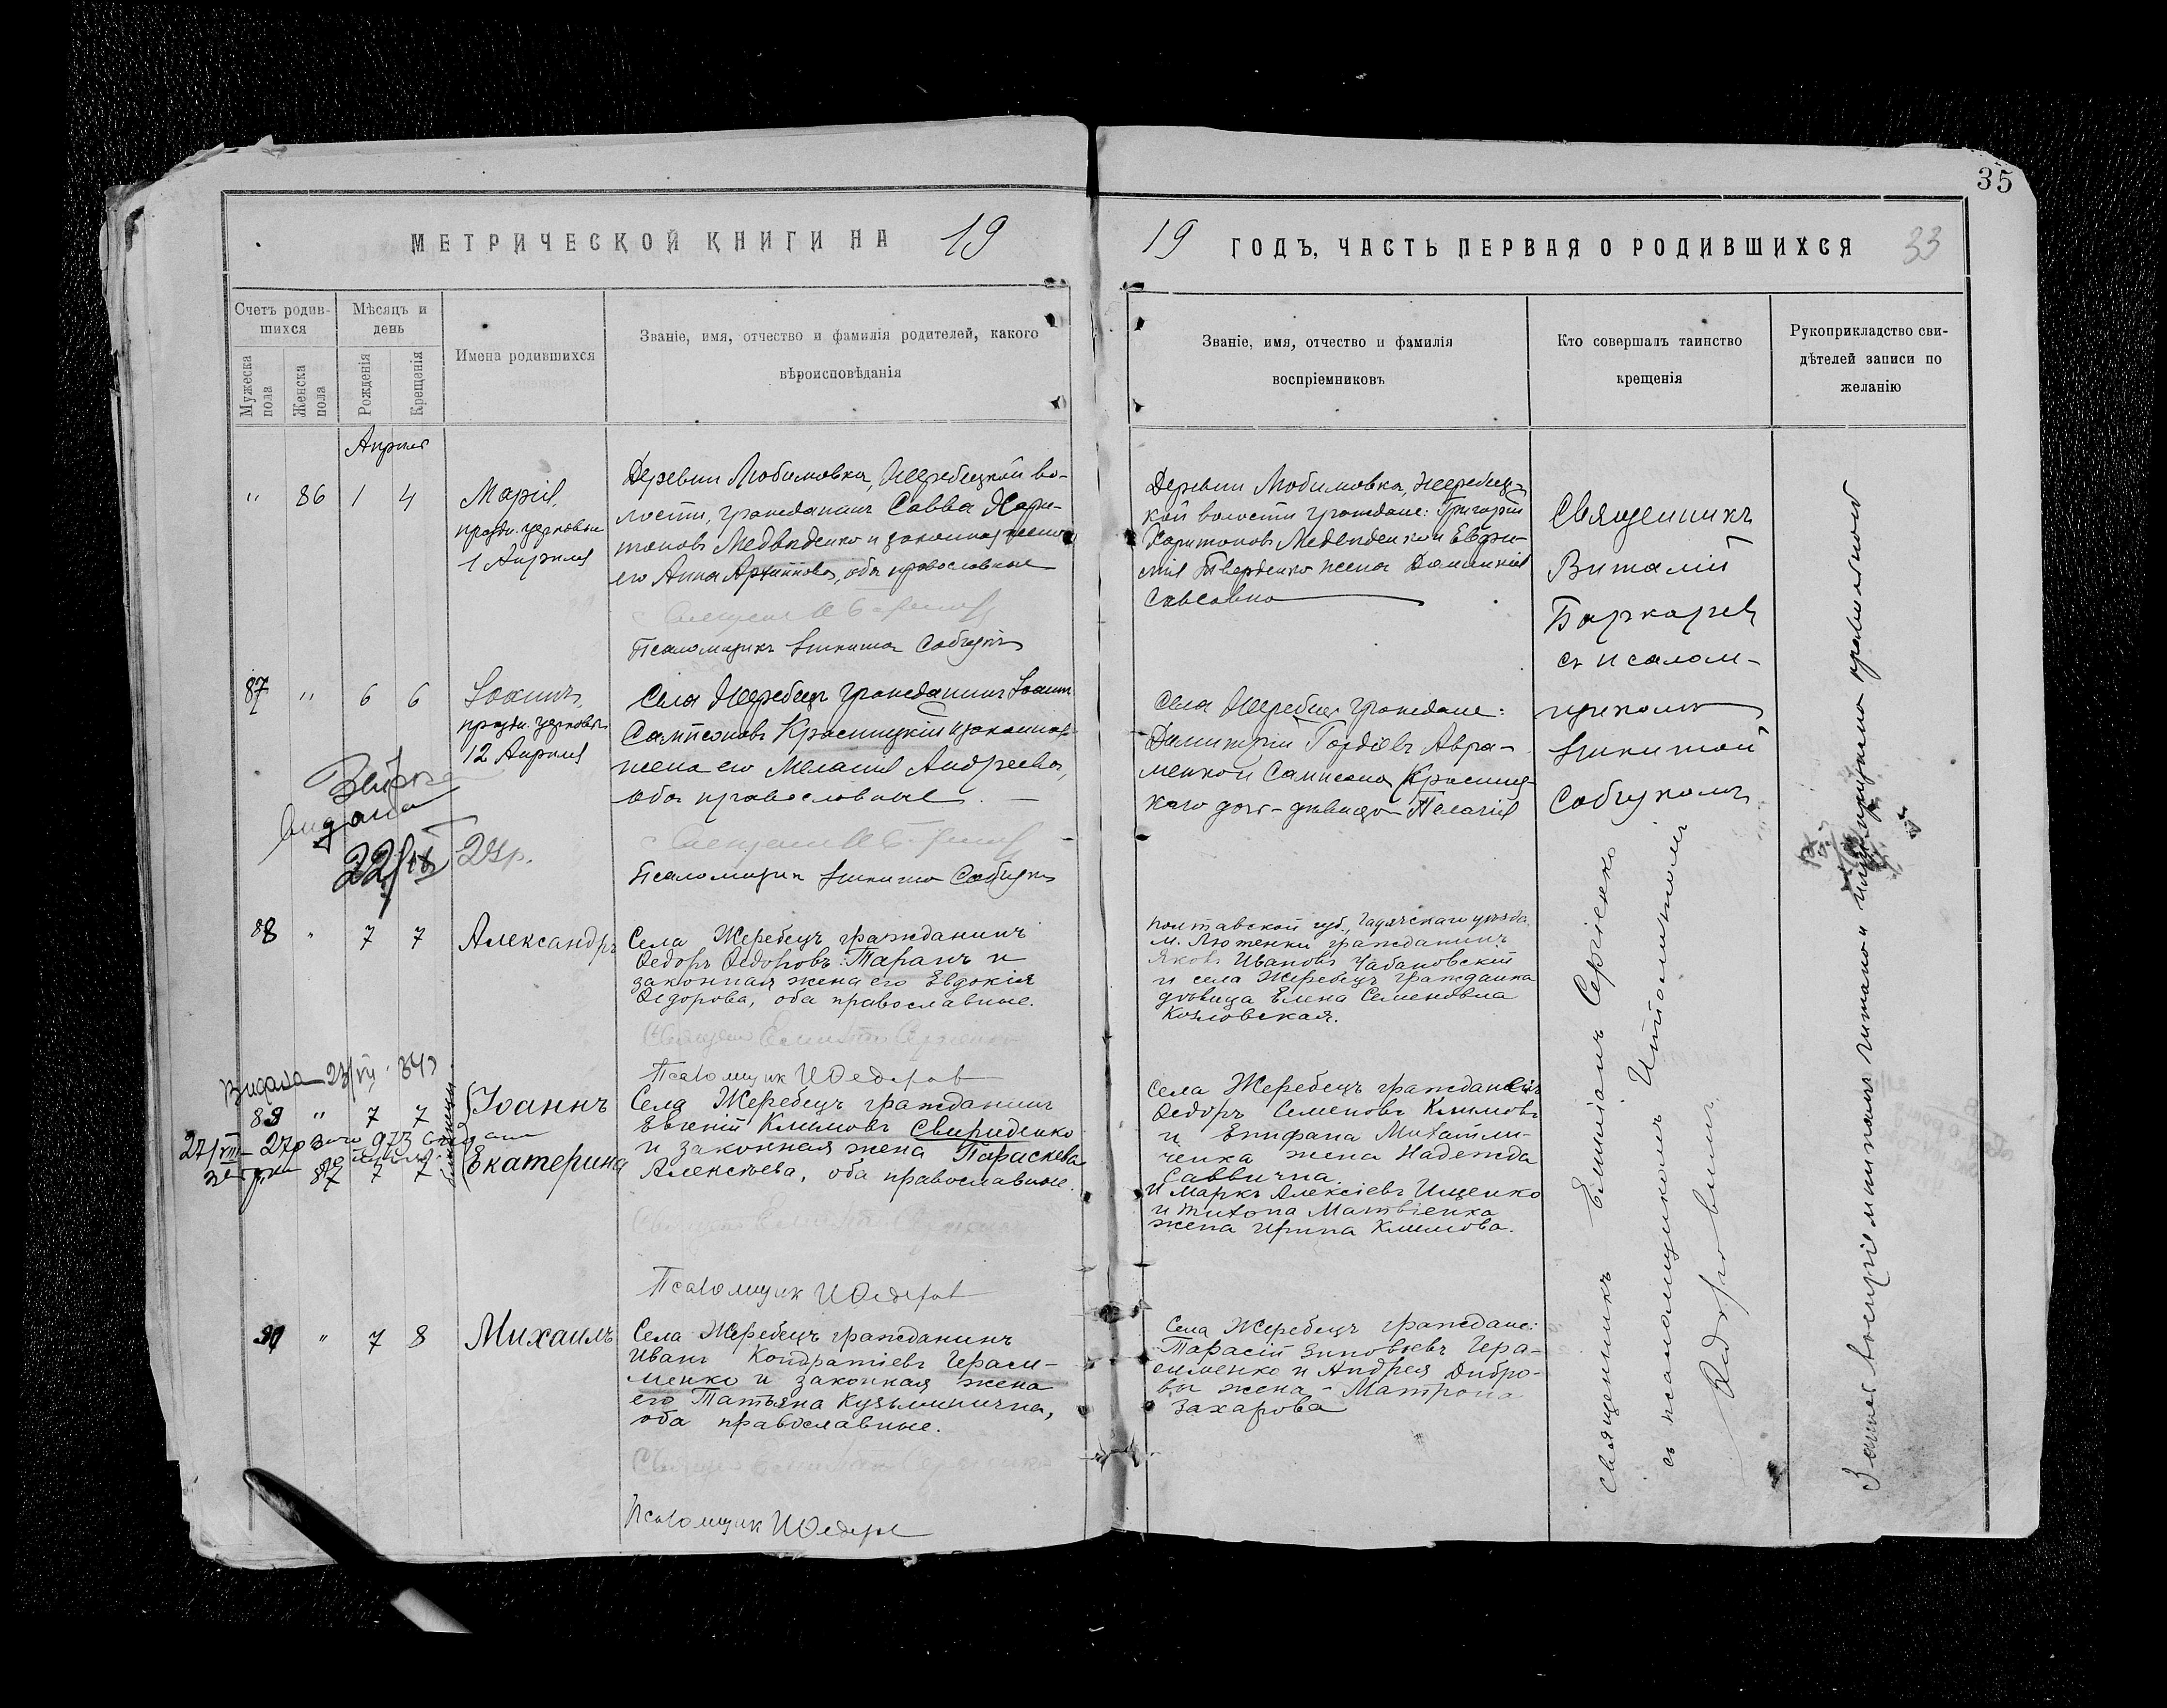 35
МЕТРИЧЕСКОЙ КНИГИ НА 19
19 ГОДЪ, ЧАСТЬ ПЕРВАЯ О РОДИВШИХСЯ 33
Счетъ родив-
шихся
Мужеска
пола
Женска
пола
Мѣсяцъ и
день
Рожденія
Крещенія
Имена родившихся
Званіе, имя, отчество и фамилія родителей, какого
вѣроисповѣданія
Званіе, имя, отчество и фамилія
воспріемниковъ
Кто совершалъ таинство
крещенія
Рукоприкладство сви-
дѣтелей записи по
желанію
Апрѣля
" 86 1 4
Марія,
праздн. церковью
1 Апрѣля
Деревни Любимовка, Жеребецкой во-
лости, гражданинъ Савва Хари-
тоновъ Медвѣденко и законная жена
его Анна Архиппова, оба православные
Псаломщикъ Никита Собчукъ
Деревни Любимовка, Жеребец-
кой волости граждане: Григорій
Харитоновъ Медвѣденко и Евфи-
мія Тверденко жена Доминикія
Саввовна
Священникъ
Виталій
съ псалом-
щикомъ
Никитой
Собчукомъ
87 " 6 6
Іоаннъ,
праздн. церковью
12 Апрѣля
Села Жеребецъ гражданинъ Іоаннъ
Сампсоновъ Красницкій и законная
жена его Меланія Андреева,
оба православные
Псаломщикъ Никита Собчукъ
Села Жеребецъ граждане:
Димитрій Гордіевъ Авра-
менко и Сампсона Красниц-
каго дочь - дѣвица Пелагія
видана
22/IX 24р.
88 " 7 7
Александръ
Села Жеребецъ гражданинъ
Ѳедоръ Ѳедоровъ Таранъ и
законная жена его Евдокія
Ѳедорова, оба православные.
Псаломщик И Ѳедоров
Полтавской губ., Гадячскаго уѣзда
м. Лютенки гражданинъ
Яковъ Ивановъ Чабановскій
и села Жеребецъ гражданка
дѣвица Елена Семеновна
Козловская.
Видана 23/VII 34р
89 " 7 7
Іоаннъ
27/VIII 27р
87 7 7
Екатерина
близнецы
Села Жеребецъ гражданинъ
Евгеній Климовъ Свириденко
и законная жена Параскева
Алексѣева, оба православные.
Псаломщик И Ѳедоров
Села Жеребецъ гражданинъ
Ѳедоръ Семеновъ Климовъ
и Епифана Михайли-
ченка жена Надежда
Саввична.
И Маркъ Алексіевъ Ищенко
и Тихона Матвіенка
жена Ирина Климова.
" 7 8
Михаилъ
Села Жеребецъ гражданинъ
Иванъ Кондратіевъ Гераси-
менко и законная жена
его Татьяна Кузьминична,
оба православные.
Псаломщик И Ѳедоров
Села Жеребецъ граждане:
Тарасій Зиновьевъ Гера-
сименко и Андрея Дибро-
вы жена - Матрона
Захарова
Священникъ Емиліанъ Сергіенко
съ псаломщикомъ Ипполитомъ